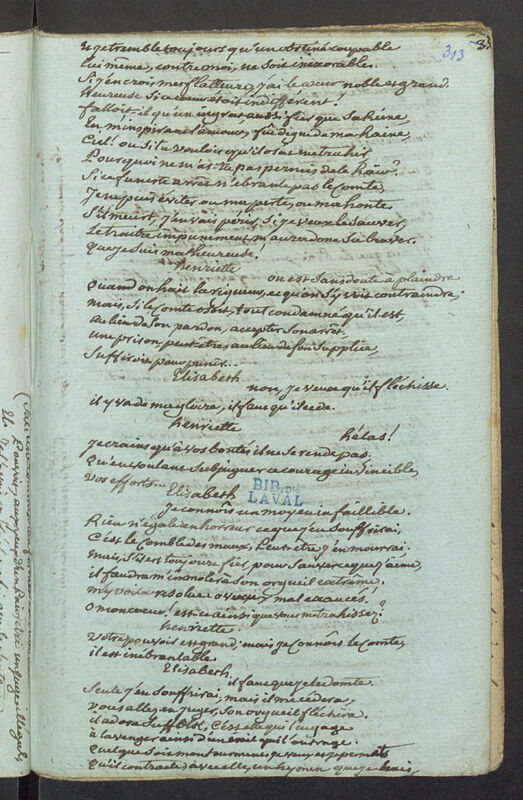 313
et je tremble toujours qu'un obstiné coupable
lui même, contre moi, ne soit inexorable.
Si j'en crois mes flatteurs, j'ai le coeur noble et grand.
heureuse si ce coeur etoit indifférent!
falloit-il qu'un ingrat aussi fier que sa Reine
En m'inspirant l'amour, fût digne de ma haine,
Ciel! ou si tu voulois qu'il osat me trahir,
Pourquoi ne m'as-tu pas permis de le haïr?
Si ce funeste arrêt n'ebranle pas le Comte,
Je ne puis éviter ou ma perte, ou ma honte.
S'il meurt, j'en vais périr, Si je veux le Sauver,
Le traitre impunément m'aura donc Su braver.
que je suis malheureuse.
henriette
on est Sans doute à plaindre
Quand on hait la rigueur, et qu'on S'y voit contraindre;
mais, Si le Comte osoit, tout condamné qu'il est,
au lieu de Son pardon, accepter Son arrêt,
une prison, peut être au lieu de son Supplice,
Suffiroit pour punir...
Elisabeth
non, je veux qu'il fléchisse.
il y va de ma gloire, il faut qu'il cede.
henriette
hélas!
Je crains qu'à vos bontés il ne Se rende pas.
Qu'en voulant Subjuguer ce courage invincible,
vos efforts...
BIB. DE
LAVAL
Elisabeth
Je connois un moyen infaillible.
Rien n'égale en horreur ce que j'en Souffrirai,
C'est le Comble des maux, Peut-etre j'en mourrai.
mais, S'il est toujours fier, pour Sauver ce que j'aime,
il faudra m'immoler à Son orgueil extrême.
m'y voilà résolue. o voeux mal exaucés!
o mon coeur! est-ce ainsi que vous me trahissez?
henriette
votre pouvoir est grand, mais je Connois le Comte,
il est inébranlable.
Elisabeth
il faut que je le domte.
Seule j'en Souffrirai, mais il me cédera,
vous allez en juger, Son orgueil fléchira.
il adore Suffolk, C'est elle qui l'engage
à la venger ainsi d'un exil qui l'outrage.
Quelque Soit mon tourment, je veux, et je permets
Qu'il contracte avec elle, un hymen que je hais,